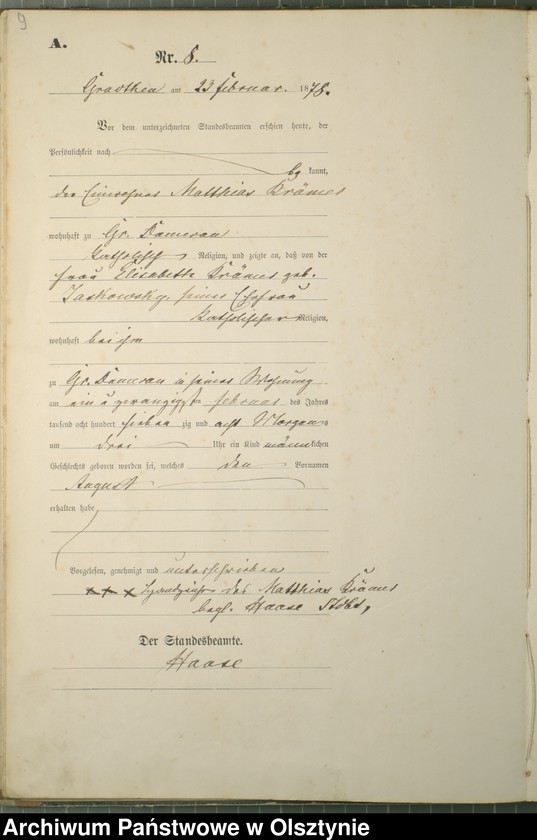 9
A.
Nr. 8.
am 23 Februar. 1878.
Vor dem unterzeichneten Standesbeamten erschien heute, der
Persönlichkeit nach
kannt,
der Einwohner Matthias Krämer
wohnhaft zu Gr. Damerau
katholisch Religion, und zeigte an, daß von der
Frau Elisabeth Krämer geb.
seiner Ehefrau
katholischer Religion,
wohnhaft bei ihm
zu Gr. Damerau in seiner Wohnung
am ein u zwanzigsten Februar des Jahres
tausend acht hundert sieben zig und acht Morgens
um drei Uhr ein Kind männlichen
Geschlechts geboren worden sei, welches den Vornamen
August
erhalten habe
Vorgelesen, genehmigt und unterschrieben
+ + + Handzeichen des Matthias Krämer
begl. Haase Stdbt,
Der Standesbeamte.
Haase
Archiwum Państwowe w Olsztynie